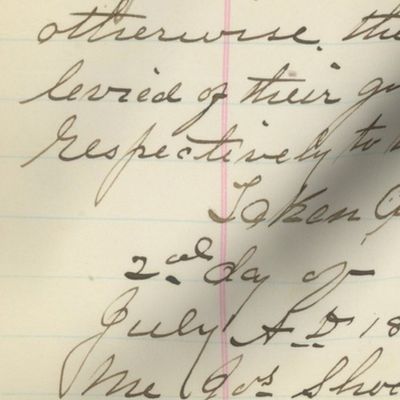 otherwise, the
levied of their
respectively to
Taken
2nd day of
July A.D. 18
Me Jos Shoe